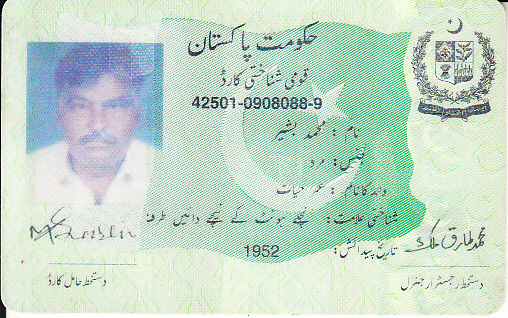 حکومت پاکستان
قومی شناختی کارڈ
42501-0908088-9
نام: محمد بشیر
جنس: مرد
والد کا نام: عمر حیات
شناختی علامت: نچلے ہونٹ کے نیچے دائیں طرف
تاریخ پیدائش: 1952
محمد طارق ملک
دستخط حامل کارڈ
دستخط رجسٹرار جنرل